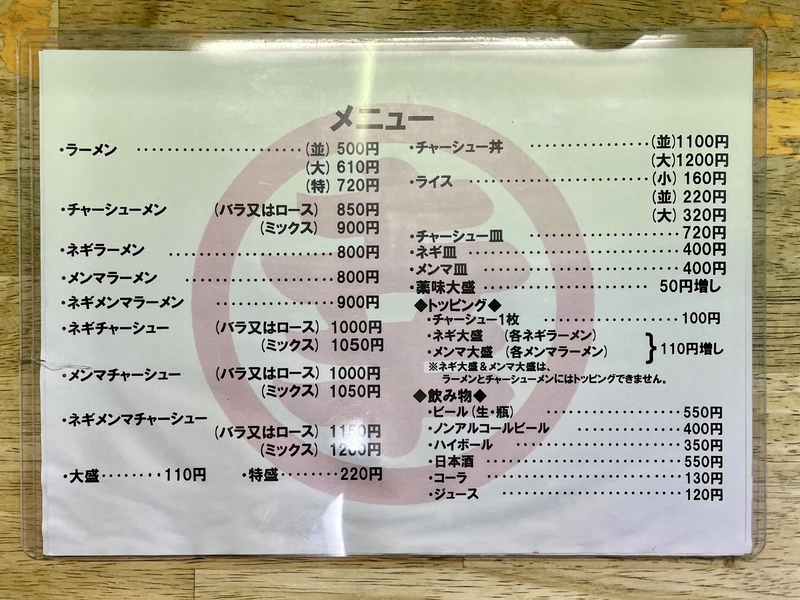 メニュー
・ラーメン ・・・・・・・・・・・・・・・・・・・・ (並) 500円
(大) 610円
(特) 720円
・チャーシューメン (バラ又はロース) 850円
(ミックス) 900円
・ネギラーメン ・・・・・・・・・・・・・・・・・・・・ 800円
・メンマラーメン ・・・・・・・・・・・・・・・・・・ 800円
・ネギメンマラーメン ・・・・・・・・・・・・・・ 900円
・ネギチャーシュー (バラ又はロース) 1000円
(ミックス) 1050円
・メンマチャーシュー (バラ又はロース) 1000円
(ミックス) 1050円
・ネギメンマチャーシュー
(バラ又はロース) 1150円
(ミックス) 1200円
・大盛・・・・・・・・110円 ・特盛・・・・・・・・220円
・チャーシュー丼 ・・・・・・・・・・・・・・・(並)1100円
(大)1200円
・ライス ・・・・・・・・・・・・・・・・・・・・・・(小) 160円
(並) 220円
(大) 320円
・チャーシュー皿 ・・・・・・・・・・・・・・・・・・ 720円
・ネギ皿 ・・・・・・・・・・・・・・・・・・・・・・・・ 400円
・メンマ皿 ・・・・・・・・・・・・・・・・・・・・・・ 400円
・薬味大盛 ・・・・・・・・・・・・・・・・・・ 50円増し
◆トッピング◆
・チャーシュー1枚 ・・・・・・・・・・・・・・・・ 100円
・ネギ大盛 (各ネギラーメン)
・メンマ大盛 (各メンマラーメン) }110円増し
※ネギ大盛&メンマ大盛は、
ラーメンとチャーシューメンにはトッピングできません。
◆飲み物◆
・ビール(生・瓶) ・・・・・・・・・・・・・・・・・・ 550円
・ノンアルコールビール ・・・・・・・・・・・・・・ 400円
・ハイボール ・・・・・・・・・・・・・・・・・・・・・・ 350円
・日本酒 ・・・・・・・・・・・・・・・・・・・・・・・・ 550円
・コーラ ・・・・・・・・・・・・・・・・・・・・・・・・ 130円
・ジュース ・・・・・・・・・・・・・・・・・・・・・・ 120円